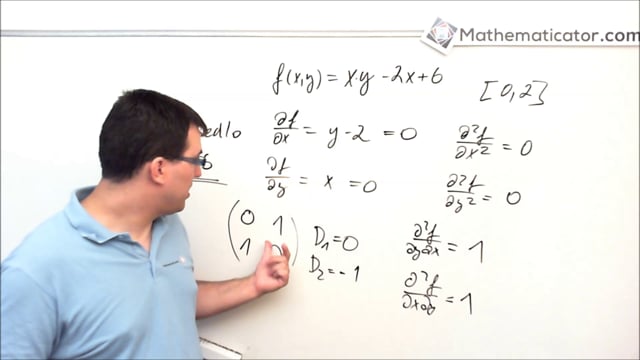 Mathematicator.com
f(x,y) = x·y - 2x + 6
[0,2]
∂f/∂x = y - 2 = 0
∂²f/∂x² = 0
∂f/∂y = x = 0
∂²f/∂y² = 0
0 1
1 0
D₁ = 0
D₂ = -1
∂²f/∂y∂x = 1
∂²f/∂x∂y = 1